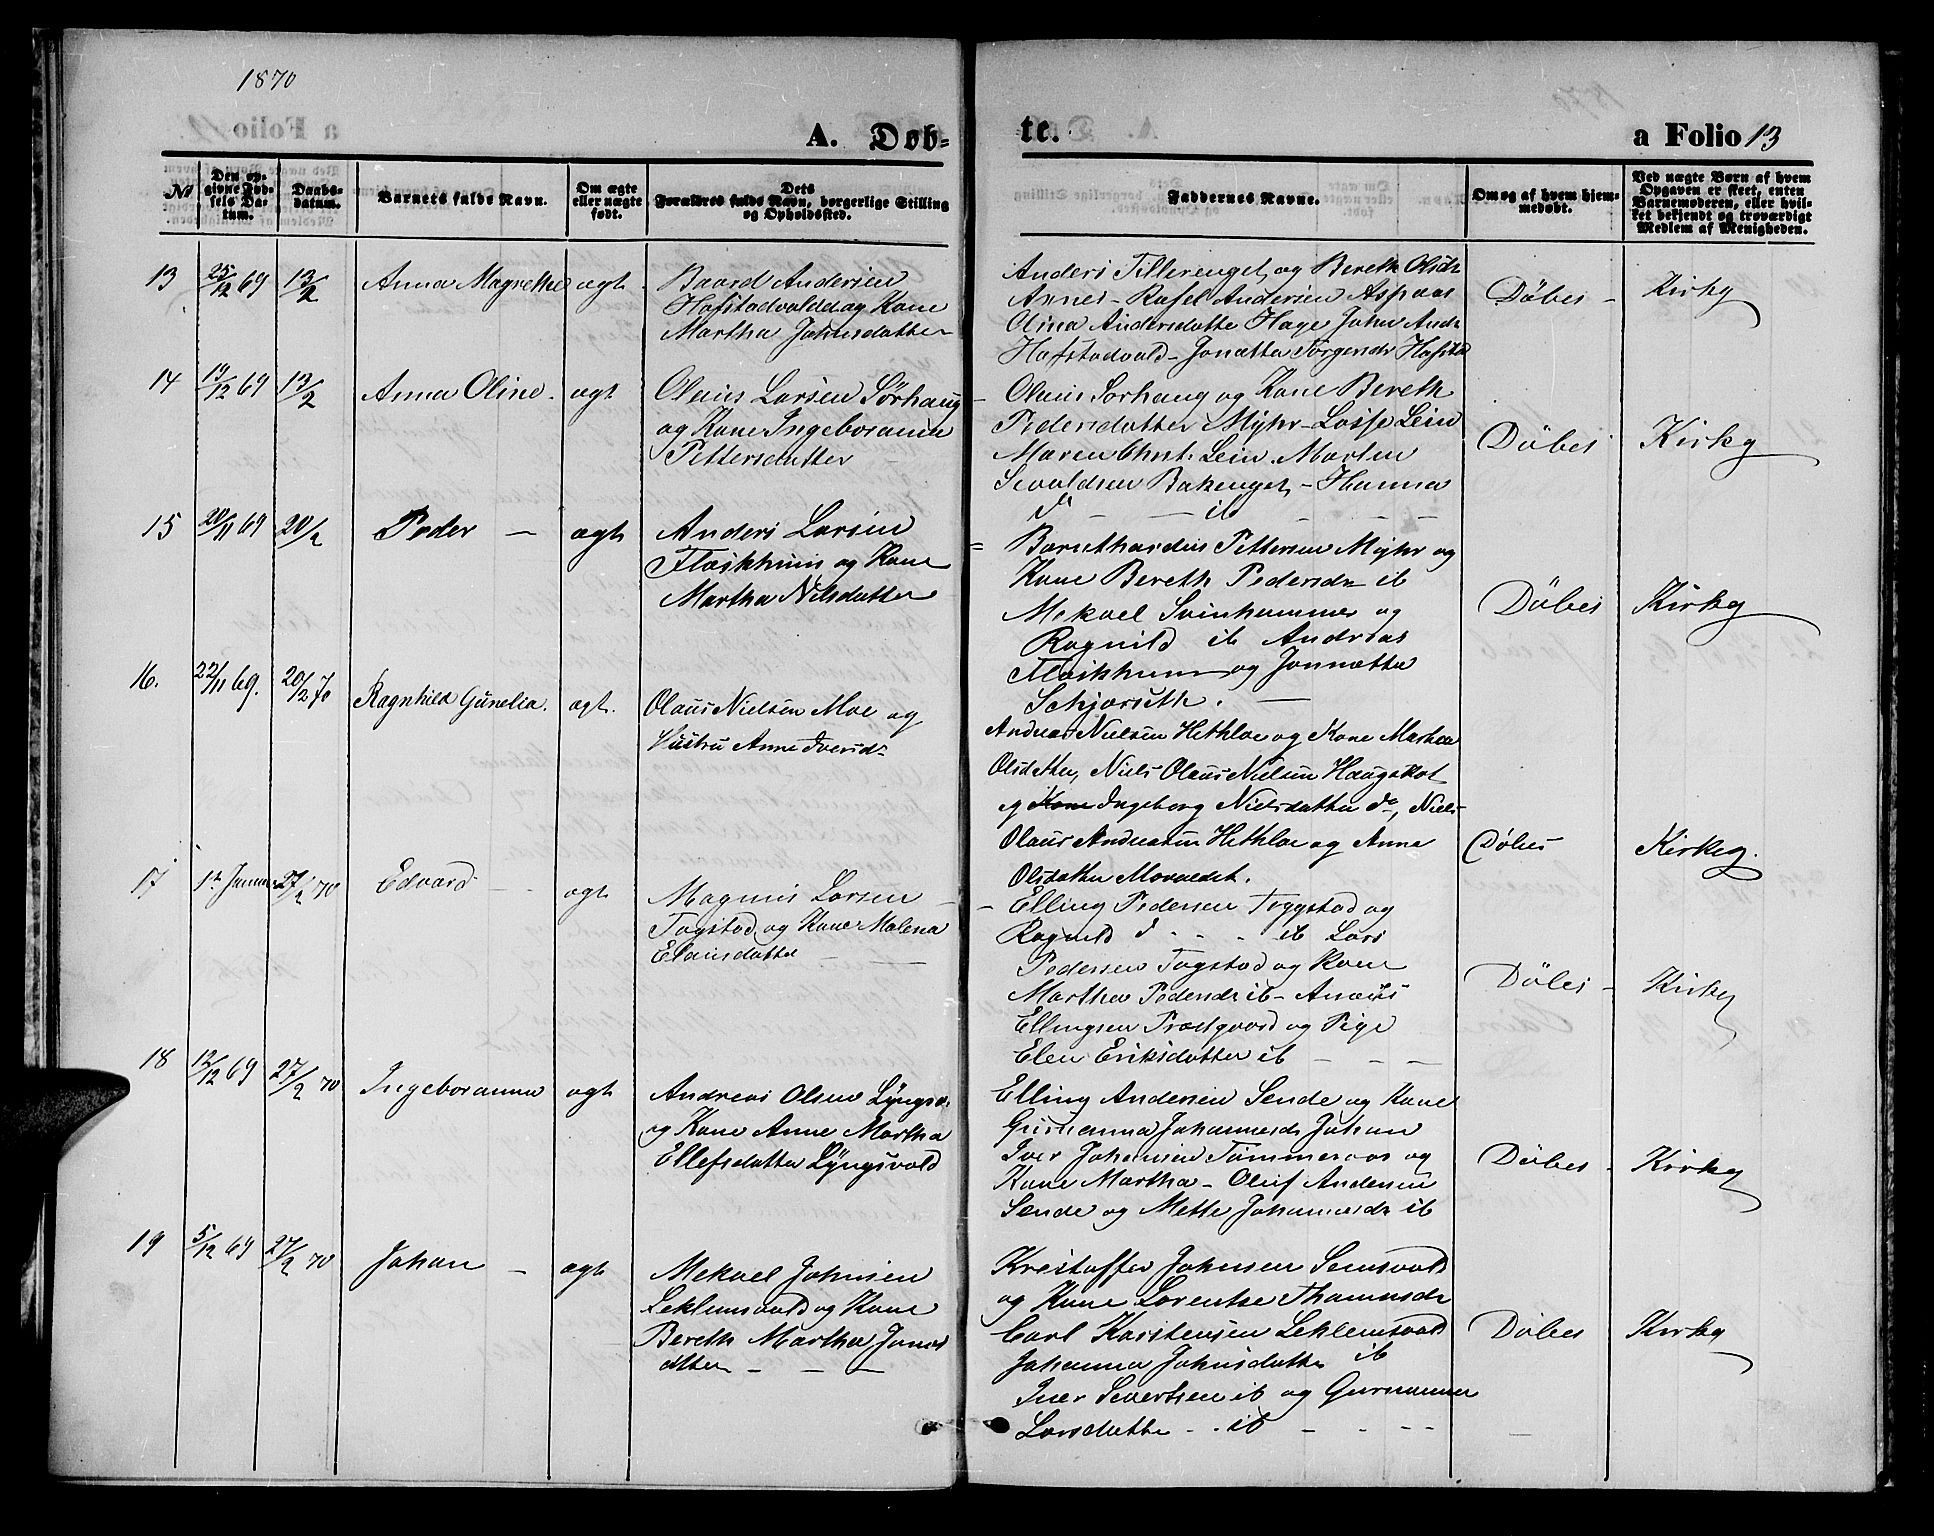 1870
A. Døb-
te.
a Folio 13
No
Den op-
givne Fød-
sels Da-
tum.
Daabs-
datum.
Barnets fulde Navn.
Om ægte
eller uægte
født.
Dets
Forældres fulde Navn, borgerlige Stilling
og Opholdssted.
Faddernes Navne.
Om og af hvem hjem-
medøbt.
Ved uægte Børn af hvem
Opgaven er skeet, enten
Barnemoderen, eller hvil-
ket bekjendt og troværdigt
Medlem af Menigheden.
13
25/12 69
13/2
Anna Magrethe
ægt
Baard Andersen
Hofstadvald og Kone
Martha Johnsdatter
Anders Tillerenget og Bereth Olsdr
Annes - Rafel Andersen Aspaas
Olina Andersdatte Hage John Andr
Hofstadvald - Jonetta Jørgensdr Hofstad
Døbes -
Kirky
14
19/12 69
13/2
Anna Oline.
ægt
Olaus Larsen Sørhaug
og Kone Ingeboranna
Pettersdatter
- Olaus Sørhaug og Kone Bereth
Pedersdatter Myhr - Losse Lein
Maren Christ. Lein. Morten
Sevaldsen Bakenget - Hanna
d - - ib - - -
Døbes
Kirky
15
20/11 69
20/2
Peder -
ægt
Anders Larsen
Flaskhum og Kone
Martha Nilsdatter
= Barnthardus Pettersen Myhr og
Kone Bereth Pedersdr ib
Mekael Svinhammer og
Ragnild ib Andreas
Flaskhum og Jonnetta
Schjørseth. -
Døbes
Kirky
16.
22/11 69.
20/2 70
Ragnhild Gunelia.
ægt.
Olaus Nielsen Moe og
Hustru Anne Iversdr
Andreas Nielsen Hethloe og Kone Marthea
Olsdatter, Niels Olaus Nielsen Haugskot
og Kone Ingeborg Nielsdatter do, Niels
Olaus Andreasen Hethloe og Anne
Olsdatter Movaldet.
Døbes
Kirkeg.
17
1ste Januar
27/2 70
Edvard - -
ægt
Magnus Larsen -
Togstad og Kone Malena
Elausdatter - -
- Elling Pedersen Toggstad og
Ragnild d - - - ib Lars
Pedersen Togstad og Kone
Martha Pedersdr ib - Anæus
Ellingsen Præstgaard og Pige
Elen Eriksdatter ib - - -
Døbes -
Kirky
18
12/12 69
27/2 70
Ingeboranna
ægt
Andreas Olsen Lyngsv.
og Kone Anne Martha
Ellefsdatter Lyngsvald
Elling Andersen Sende og Kone
Gurianna Johannesdr Johan
Iver Johansen Tømmeraas og
Kone Martha - Oluf Andersen
Sende og Mette Johannesdr ib
Døbes -
Kirky
19
5/12 69
27/2 70
Johan -
ægt
Mekael Johnsen
Leklemsvald og Kone
Bereth Martha Jonas
datter - - -
Kristoffer Johnsen Semsvald
og Kone Lorentse Thomasdr
Carl Karstensen Leklemsvald
Johanna Johnsdatter ib
Iver Severtsen ib og Gurnanna
Larsdatter - . ib - - - -
Døbes
Kirky